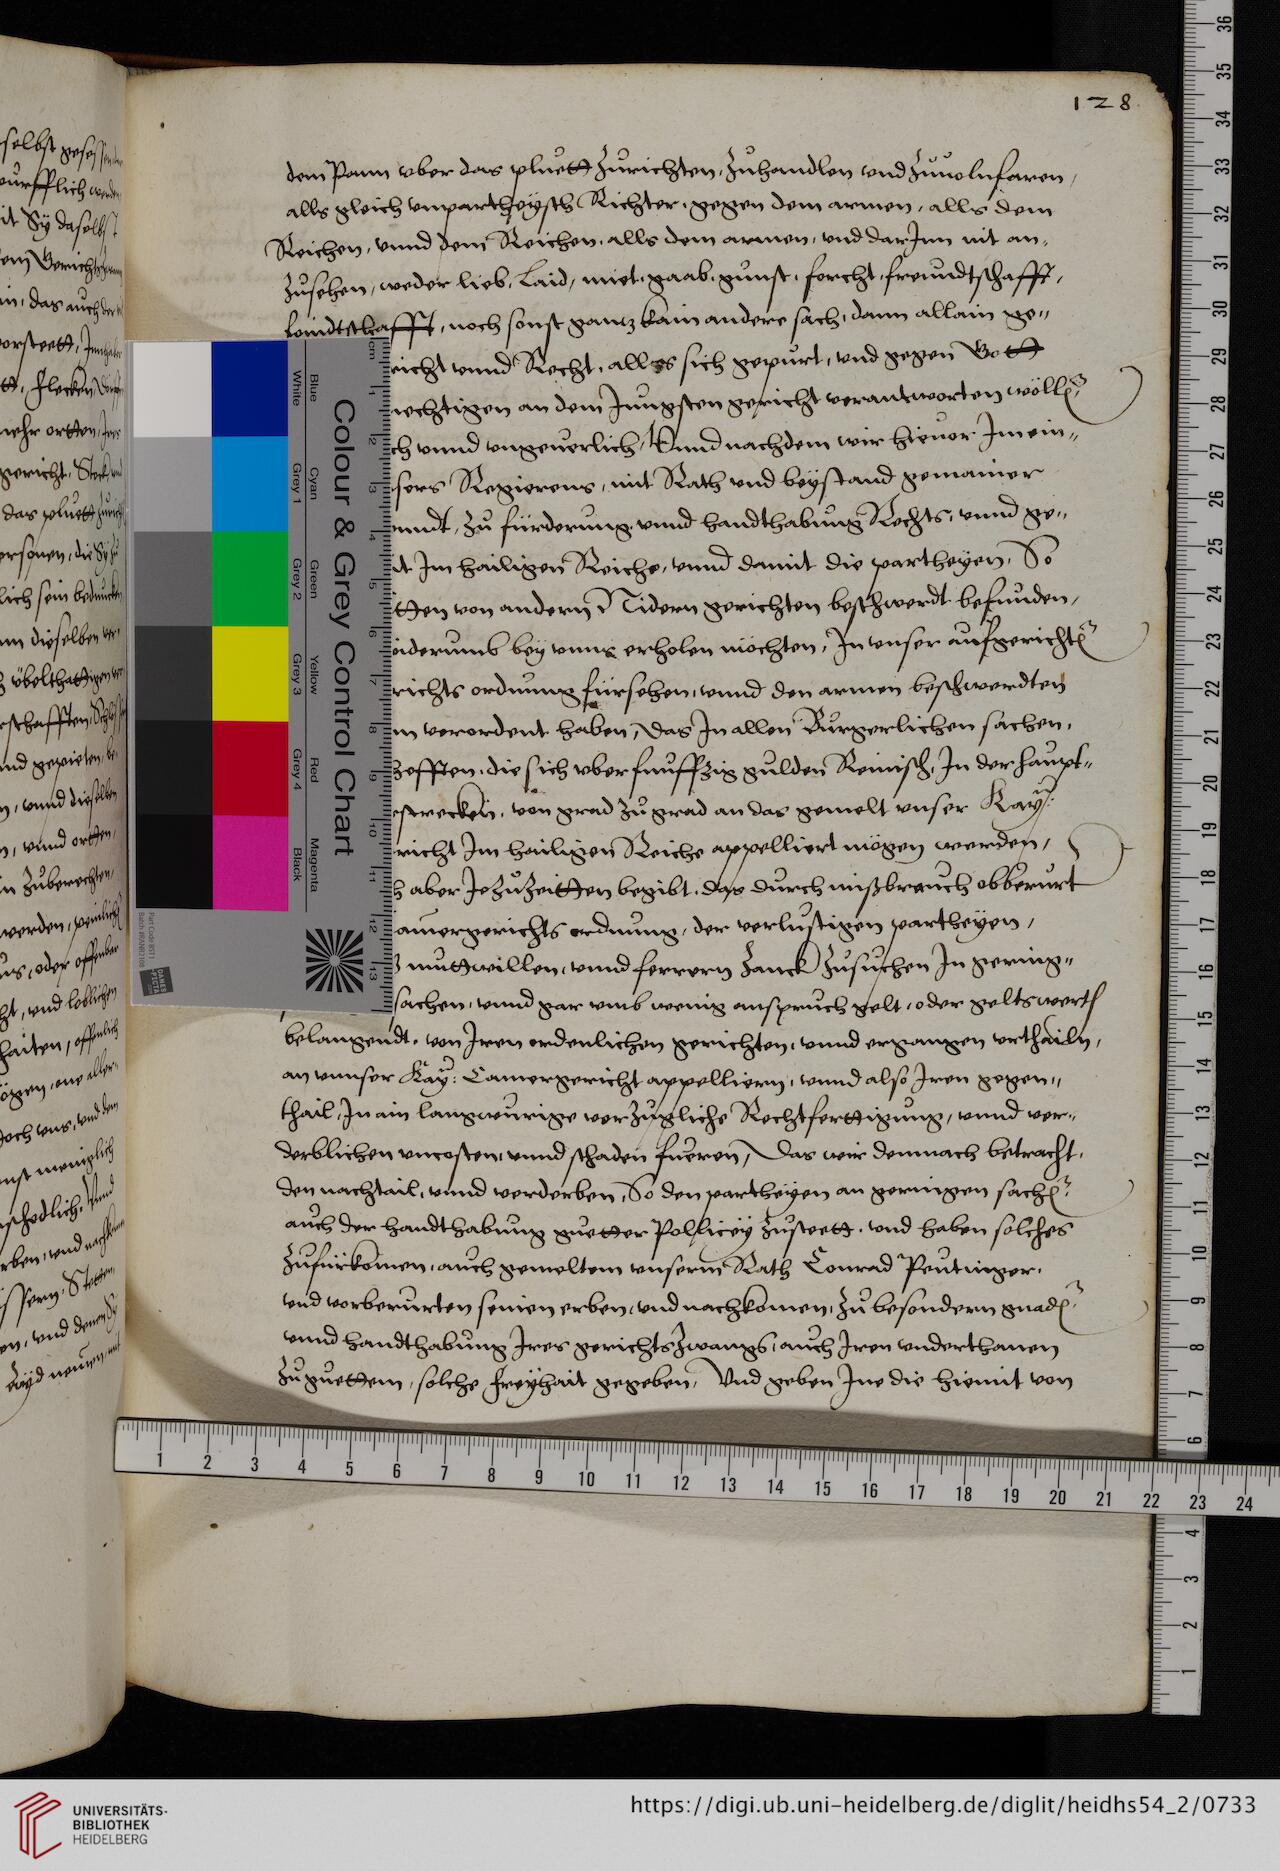 128
dem Pann vber das pluett zurichten, zuhandlen vnd zuuolnfaren,
alls gleich vnpartheysch Richter, gegen dem armen, alls dem
Reichen, vnnd dem Reichen, alls dem armen, vnd dar Jnn nit an„
zusehen, weder lieb, laid, miet, gaab, gunst, forcht, freundtschafft,
feindtschafft, noch sonst gantz kain andere sach, dann allain ge„
richt vnnd Recht, alls es sich gepurt, vnd gegen Gott
mechtigen an dem Jungsten gericht verantworten wöllen
ch vnnd vngeuerlich, Vnnd nachdem wir hieuor Jm ein„
sers Regierens, mit Rath vnd beystand gemainer
enndt, zu fürderung vnnd handthabung Rechts, vnnd ge„
dt Jm hailigen Reiche, vnnd damit die partheyen, So
tten von andern Nidern gerichten beschwerdt befunden,
iderumb bey vnns erholen möchten, In vnser aufgerichten
richts ordnung fürsehen, vnnd den armen beschwerdten
m verordent haben, Das Jn allen Burgerlichen sachen,
hefften, die sich vber funffzig gulden Reinisch, Jn der haupt„
estrecken, von grad zu grad an das gemelt vnser Kay:
richt Jm hailigen Reiche appelliert mögen werden,
h aber Je zu zeitten begibt, das durch mißbrauch obberurt
amergerichts ordnung, der verlustigen partheyen,
muttwillen, vnnd ferrern zanck zusuchen Jn gering„
sachen, vnnd gar vmb wenig anspruch gelt, oder gelts werth
belangendt, von Jren ordenlichen gerichten, vnnd ergangen vrthailn,
an vnnser Kay: Camergericht appelliern, vnnd also Jren gegen„
thail, Jn ain langwurige verzugliche Rechtfertigung, vnnd ver„
derblichen vncosten, vnnd schaden fueren, Das wir demnach betracht,
den nachtail, vnnd verderben, So den partheyen an geringen sachen
auch der handthabung guetter Pollicey zusteett, vnd haben solches
zufürkomen, auch gemeltem vnserm Rath Conrad Peutinger,
vnd vorberurten seinen erben, vnd nachkomen, zu besondern gnaden
vnnd handthabung Jres gerichtszwangs, auch Jren vnderthanen
zu guettem, solche freyhait gegeben, Vnd geben Jne die hiemit von
Colour & Grey Control Chart
Blue Cyan Green Yellow Red Magenta
White Grey 1 Grey 2 Grey 3 Grey 4 Black
DANES PICTA
UNIVERSITÄTS-
BIBLIOTHEK
HEIDELBERG
https://digi.ub.uni-heidelberg.de/diglit/heidhs54_2/0733